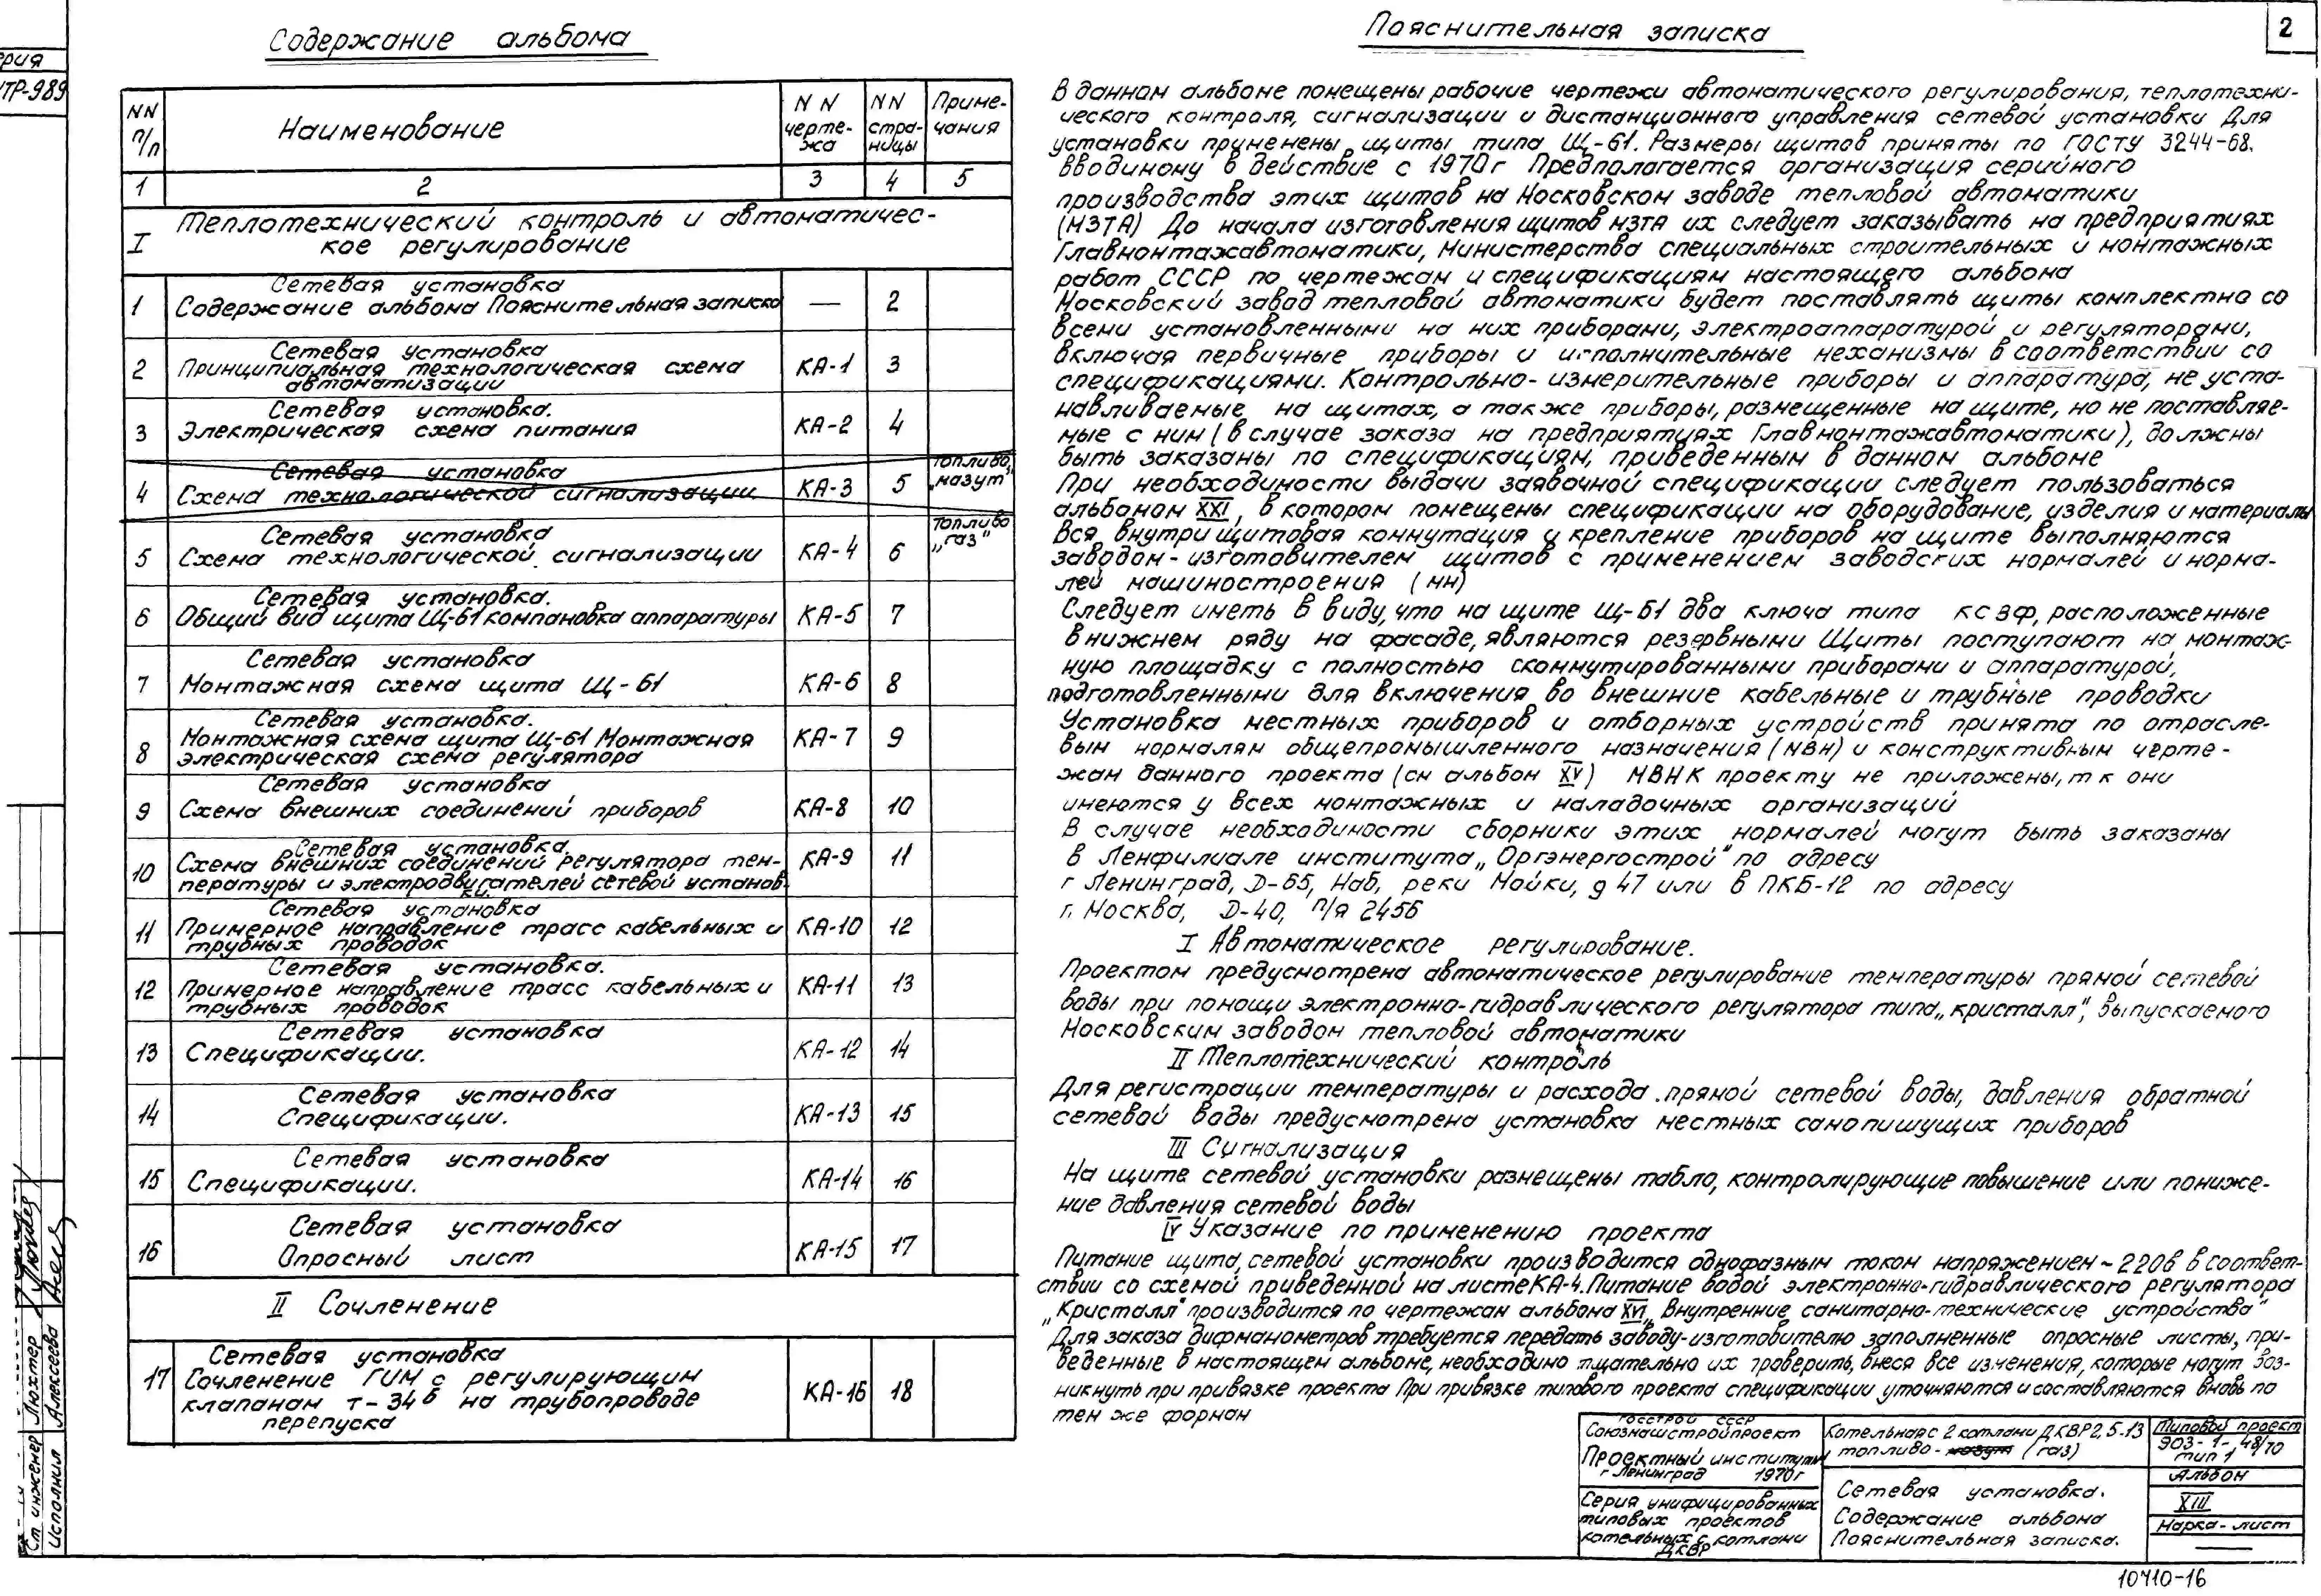 Содержание альбома
NN п/п
Наименование
NN чертежа
NN страницы
Примечания
1 2 3 4 5
I Теплотехнический контроль и автоматичес-
кое регулирование
Сетевая установка
1 Содержание альбома Пояснительная записка — 2
Сетевая установка
2 Принципиальная технологическая схема КА-1 3
автоматизации
Сетевая установка.
3 Электрическая схема питания КА-2 4
Сетевая установка топливо
4 Схема технологической сигнализации КА-3 5 „мазут"
Сетевая установка топливо
5 Схема технологической сигнализации КА-4 6 „газ"
Сетевая установка.
6 Общий вид щита Щ-61 компановка аппаратуры КА-5 7
Сетевая установка
7 Монтажная схема щита Щ-61 КА-6 8
Сетевая установка.
8 Монтажная схема щита Щ-61 Монтажная КА-7 9
электрическая схема регулятора
Сетевая установка
9 Схема внешних соединений приборов КА-8 10
Сетевая установка
10 Схема внешних соединений регулятора тем- КА-9 11
пературы и электродвигателей сетевой установ
ки
Сетевая установка
11 Примерное направление трасс кабельных и КА-10 12
трубных проводок
Сетевая установка.
12 Примерное направление трасс кабельных и КА-11 13
трубных проводок
Сетевая установка
13 Спецификации. КА-12 14
Сетевая установка
14 Спецификации. КА-13 15
Сетевая установка
15 Спецификации. КА-14 16
Сетевая установка
16 Опросный лист КА-15 17
II Сочленение
Сетевая установка
17 Сочленение ГИМ с регулирующим
клапаном т-34б на трубопроводе КА-16 18
перепуска
Пояснительная записка
2
В данном альбоме помещены рабочие чертежи автоматического регулирования, теплотехни-
ческого контроля, сигнализации и дистанционного управления сетевой установки Для
установки применены щиты типа Щ-61. Размеры щитов приняты по ГОСТУ 3244-68.
вводимому в действие с 1970г Предполагается организация серийного
производства этих щитов на Московском заводе тепловой автоматики
(МЗТА) До начала изготовления щитов МЗТА их следует заказывать на предприятиях
Главмонтажавтоматики, Министерства специальных строительных и монтажных
работ СССР по чертежам и спецификациям настоящего альбома
Московский завод тепловой автоматики будет поставлять щиты комплектно со
всеми установленными на них приборами, электроаппаратурой и регуляторами,
включая первичные приборы и исполнительные механизмы в соответствии со
спецификациями. Контрольно-измерительные приборы и аппаратура, не уста-
навливаемые на щитах, а также приборы, размещенные на щите, но не поставляе-
мые с ним (в случае заказа на предприятиях Главмонтажавтоматики), должны
быть заказаны по спецификациям, приведенным в данном альбоме
При необходимости выдачи заявочной спецификации следует пользоваться
альбомом XXI, в котором помещены спецификации на оборудование, изделия и материалы
Вся внутрищитовая коммутация и крепление приборов на щите выполняются
заводом-изготовителем щитов с применением заводских нормалей и норма-
лей машиностроения (мн)
Следует иметь в виду, что на щите Щ-61 два ключа типа КСЗФ, расположенные
в нижнем ряду на фасаде, являются резервными Щиты поступают на монтаж-
ную площадку с полностью скоммутированными приборами и аппаратурой,
подготовленными для включения во внешние кабельные и трубные проводки
Установка местных приборов и отборных устройств принята по отрасле-
вым нормалям общепромышленного назначения (МВН) и конструктивным черте-
жам данного проекта (см альбом XV) МВН К проекту не приложены, т к они
имеются у всех монтажных и наладочных организаций
В случае необходимости сборники этих нормалей могут быть заказаны
в Ленфилиале института „Оргэнергострой" по адресу
г Ленинград, Д-65, Наб, реки Мойки, д 47 или в ПКБ-12 по адресу
г. Москва, Д-40, п/я 2456
I Автоматическое регулирование.
Проектом предусмотрена автоматическое регулирование температуры прямой сетевой
воды при помощи электронно-гидравлического регулятора типа „кристалл", выпускаемого
Московским заводом тепловой автоматики
II Теплотехнический контроль
Для регистрации температуры и расхода прямой сетевой воды, давления обратной
сетевой воды предусмотрена установка местных самопишущих приборов
III Сигнализация
На щите сетевой установки размещены табло, контролирующие повышение или пониже-
ние давления сетевой воды
IV Указание по применению проекта
Питание щита сетевой установки производится однофазным током напряжением ~220в в соответ-
ствии со схемой приведенной на листе КА-4. Питание водой электронно-гидравлического регулятора
„Кристалл" производится по чертежам альбома XVI „Внутренние санитарно-технические устройства"
Для заказа дифманометров требуется передать заводу-изготовителю заполненные опросные листы, при-
веденные в настоящем альбоме, необходимо тщательно их проверить, внеся все изменения, которые могут воз-
никнуть при привязке проекта При привязке типового проекта спецификации уточняются и составляются вновь по
тем же формам
Госстрой СССР
Союзмашстройпроект
Проектный институт
г Ленинград 1970г
Серия унифицированных
типовых проектов
котельных с котлами
ДКВР
Котельная с 2 котлами ДКВР 2,5-13
топливо - мазут (газ)
Сетевая установка.
Содержание альбома
Пояснительная записка.
Типовой проект
903-1-48/70
тип 1
Альбом
XIII
Марка-лист
10410-16
ерия
ТР-989
Ст инженер Люхтер
Исполнил Алексеева